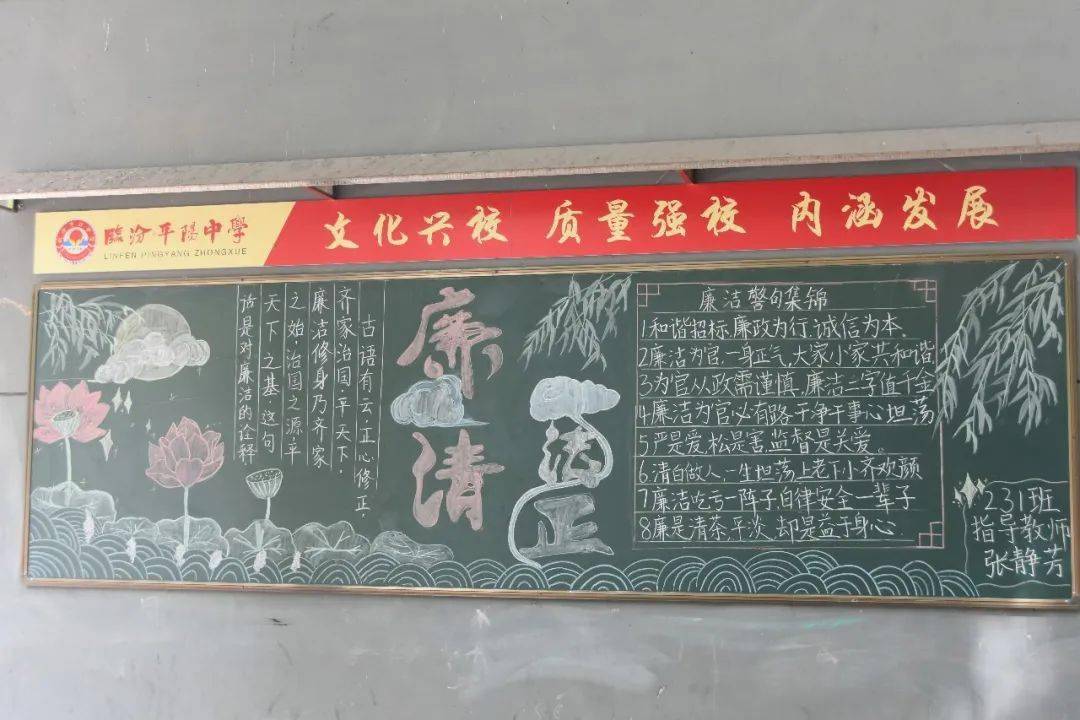 臨汾平陽中學
LINFEN PINGYANG ZHONGXUE
文化兴校 质量强校 内涵发展
古语有云，正心修正，
齐家治国，平天下，
廉洁修身乃齐家
之始，治国之源，平
天下之基 这句
话是对廉洁的诠释
廉清
洁正
廉洁警句集锦
1和谐招标，廉政为行，诚信为本.
2廉洁为官一身正气，大家小家共和谐
3为官从政需谨慎，廉洁二字值千金
4廉洁为官必有路 干净干事心坦荡
5严是爱，松是害，监督是关爱。
6.清白做人，一生坦荡上老下小齐欢颜
7廉洁吃亏一阵子，自律安全一辈子
8廉是清茶，平淡，却是益于身心
231班
指导教师
张静芳